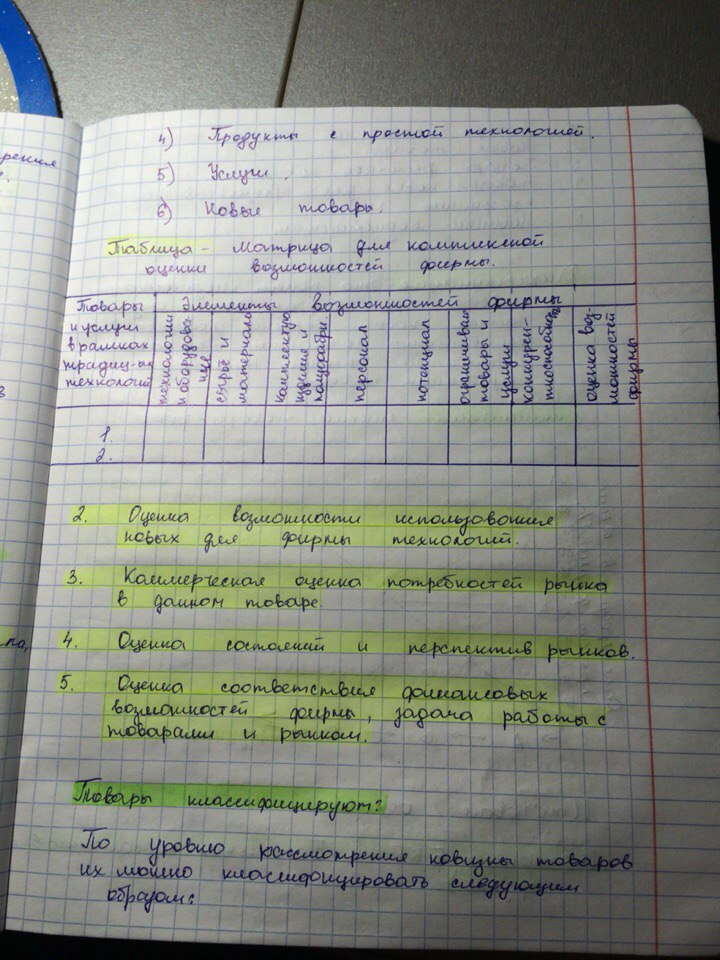 рения
4) Продукты с простой технологией.
5) Услуги.
6) Новые товары.
Таблица - Матрица для комплексной
оценки возможностей фирмы.
Товары
и услуги
в рамках
традиц-ых
технологий
Элементы возможностей фирмы
технологии
и оборудова
ние
сырье и
материалы
комплектую
изделие и
полуфабри
персонал
потенциал
ограничивал
товары и
услуги
конкурен-
тноспособнос
оценка воз-
можностей
фирмы
1.
2.
2. Оценка возможности использования
новых для фирмы технологий.
3. Коммерческая оценка потребностей рынка
в данном товаре.
4. Оценка состояний и перспектив рынков.
5. Оценка соответствия финансовых
возможностей фирмы, задача работы с
товарами и рынком.
Товары классифицируют:
По уровню рассмотрения новизны товаров
их можно классифицировать следующим
образом: